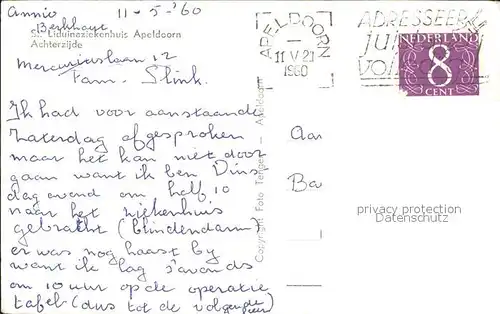 Annie 11-5-'60
Berkhout
St. Liduinaziekenhuis Apeldoorn
Achterzijde
Mercuriuslaan 12
Fam. Slink.
Ik had voor aanstaande
Zaterdag afgesproken
maar het kan niet door
gaan want ik ben Dins
dag avond om half 10
naar het ziekenhuis
gebracht (blindendarm)
er was nog haast by
want ik lag s'avonds
om 10 uur op de operatie
tafel (dus tot de volgende
keer)
Copyright Foto Tenger - Apeldoorn
APELDOORN
11 V 21
1960
ADRESSEER
JUI
VOL
NEDERLAND
8
CENT
Aan
Ba
privacy protection
Datenschutz